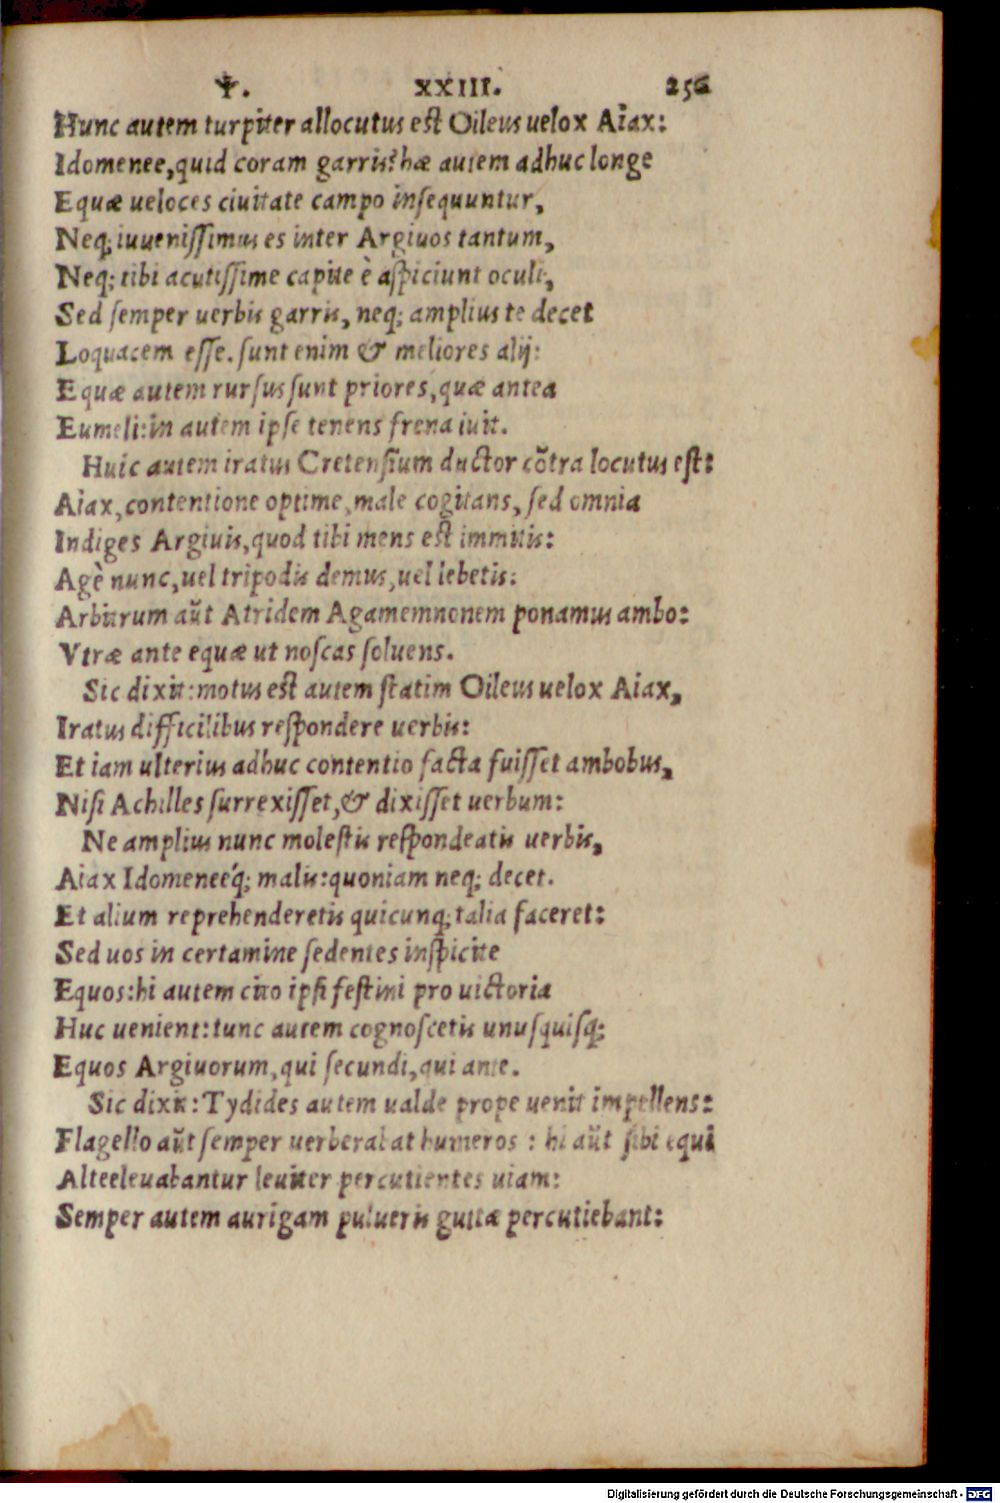 Ψ. XXIII. 256
Hunc autem turpiter allocutus est Oileus uelox Aiax:
Idomenee,quid coram garris?hæ autem adhuc longe
Equæ ueloces ciuitate campo insequuntur,
Neq; iuuenissimus es inter Argiuos tantum,
Neq; tibi acutissime capite è aspiciunt oculi,
Sed semper uerbis garris, neq; amplius te decet
Loquacem esse. sunt enim & meliores alij:
Equæ autem rursus sunt priores,quæ antea
Eumeli:in autem ipse tenens frena iuit.
Huic autem iratus Cretensium ductor cõtra locutus est:
Aiax,contentione optime,male cogitans, sed omnia
Indiges Argiuis,quod tibi mens est immitis:
Agè nunc,uel tripodis demus,uel lebetis:
Arbitrum aũt Atridem Agamemnonem ponamus ambo:
Vtræ ante equæ ut noscas soluens.
Sic dixit:motus est autem statim Oileus uelox Aiax,
Iratus difficilibus respondere uerbis:
Et iam ulterius adhuc contentio facta fuisset ambobus,
Nisi Achilles surrexisset,& dixisset uerbum:
Ne amplius nunc molestis respondeatis uerbis,
Aiax Idomeneeq́; malis:quoniam neq; decet.
Et alium reprehenderetis quicunq; talia faceret:
Sed uos in certamine sedentes inspicite
Equos:hi autem cito ipsi festini pro uictoria
Huc uenient:tunc autem cognoscetis unusquisq;
Equos Argiuorum,qui secundi,qui ante.
Sic dixit:Tydides autem ualde prope uenit impellens:
Flagello aũt semper uerberabat humeros : hi aũt sibi equi
Alteeleuabantur leuiter percutientes uiam:
Semper autem aurigam pulueris guttæ percutiebant:
Digitalisierung gefördert durch die Deutsche Forschungsgemeinschaft - DFG